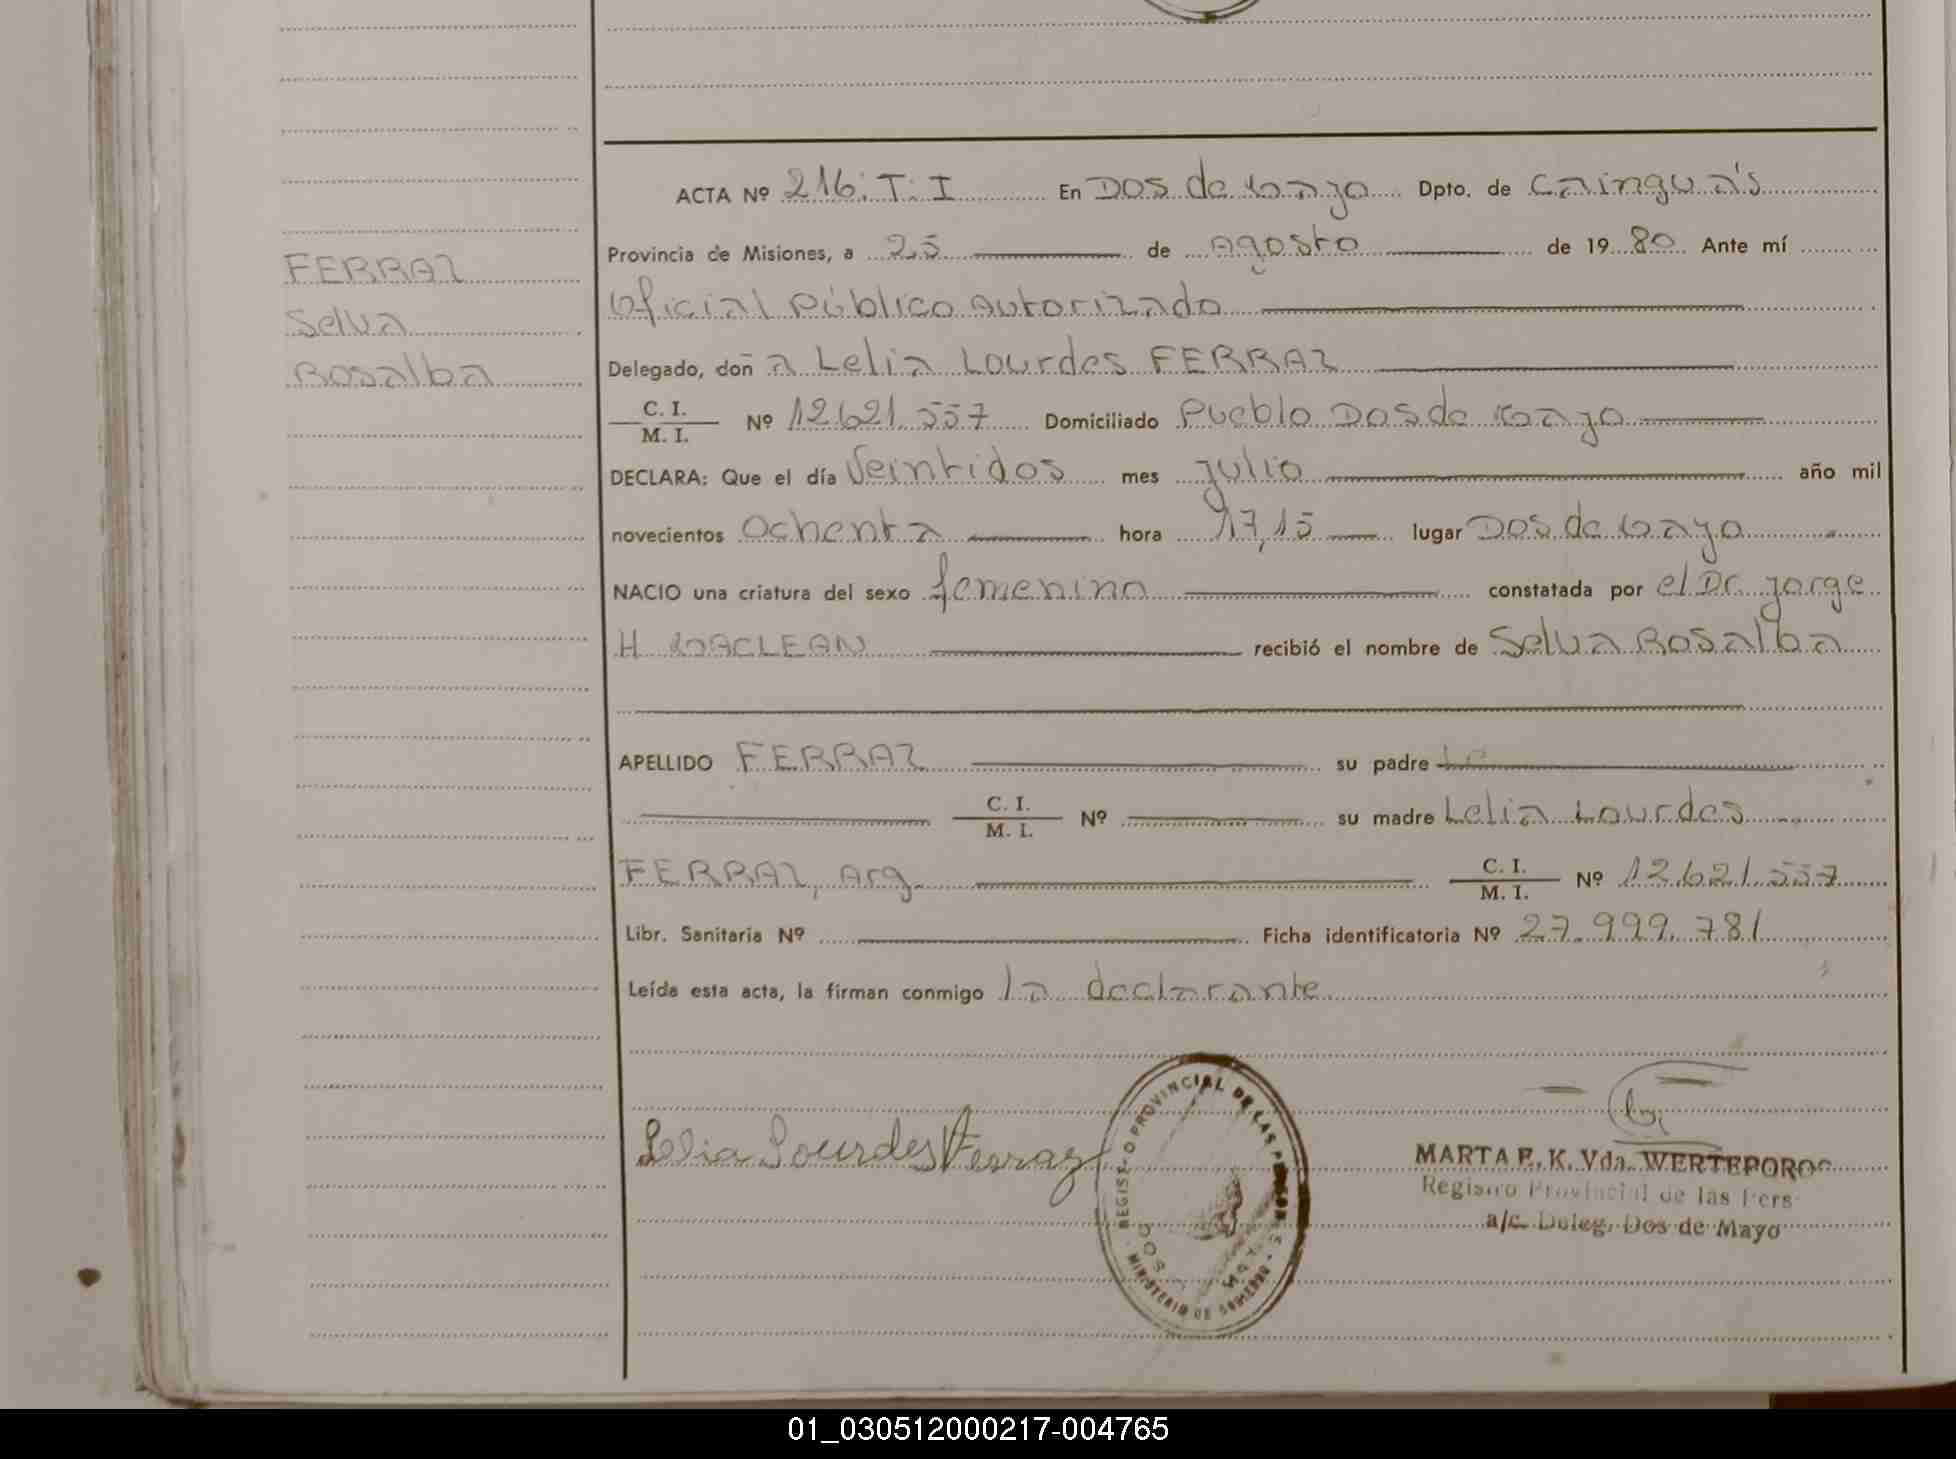 ACTA Nº 216: T: I En Dos de Mayo Dpto. de Cainguá's
Provincia de Misiones, a 25 de Agosto de 1980 Ante mí
FERRAZ
Oficial Público Autorizado
Selva
Delegado, doña Lelia Lourdes FERRAZ
Rosalba
C. I.
M. I. Nº 12.621.557 Domiciliado Pueblo Dos de Mayo
DECLARA: Que el día Veintidos mes julio año mil
novecientos Ochenta hora 17,15 lugar Dos de Mayo
NACIO una criatura del sexo femenino constatada por el Dr. Jorge
H MACLEAN recibió el nombre de Selva Rosalba
APELLIDO FERRAZ su padre
C. I.
M. I. Nº su madre Lelia Lourdes
FERRAZ, Arg. C. I.
M. I. Nº 12.621.557
Libr. Sanitaria Nº Ficha identificatoria Nº 27.999.781
Leída esta acta, la firman conmigo la declarante
Lelia Lourdes Ferraz
REGISTRO PROVINCIAL DE LAS PERSONAS
DOS DE MAYO
MINISTERIO DE GOBIERNO
MARTA E. K. Vda. WERTEPOROC
Registro Provincial de las Pers
a/c. Deleg. Dos de Mayo
01_030512000217-004765